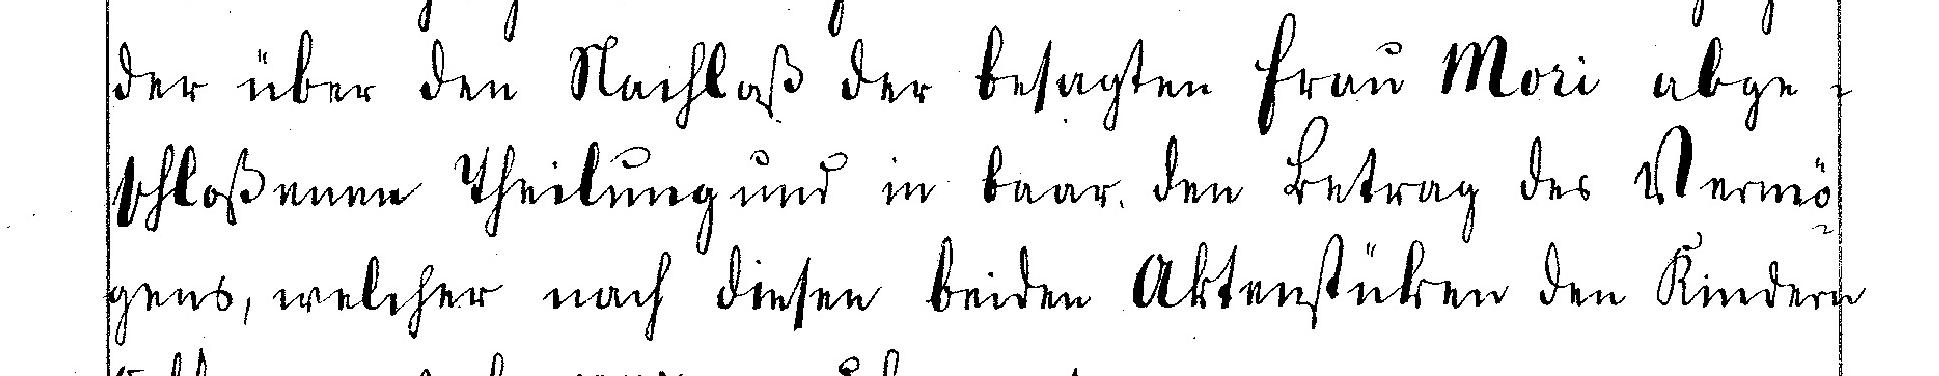 der über den Nachlaß der besagten Frau Mori abge-
schloßenen Theilung und in baar. den Betrag des Vermö-
gens, welcher nach diesen beiden Aktenstüken den Kindern